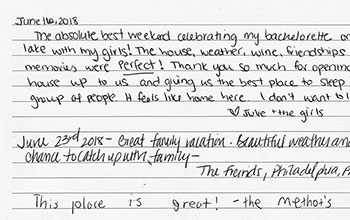 June 16, 2018
The absolute best weekend celebrating my bachelorette on
lake with my girls! The house, weather, wine, friendships
memories were perfect! Thank you so much for opening
house up to us and giving us the best place to sleep
group of people. It feels like home here I don't want to l
♡ June + the girls
June 23rd 2018 - Great family vacation. Beautiful weather and
chance to catch up with family -
The Friends, Philadelphia, P
This place is great! - the Methot's